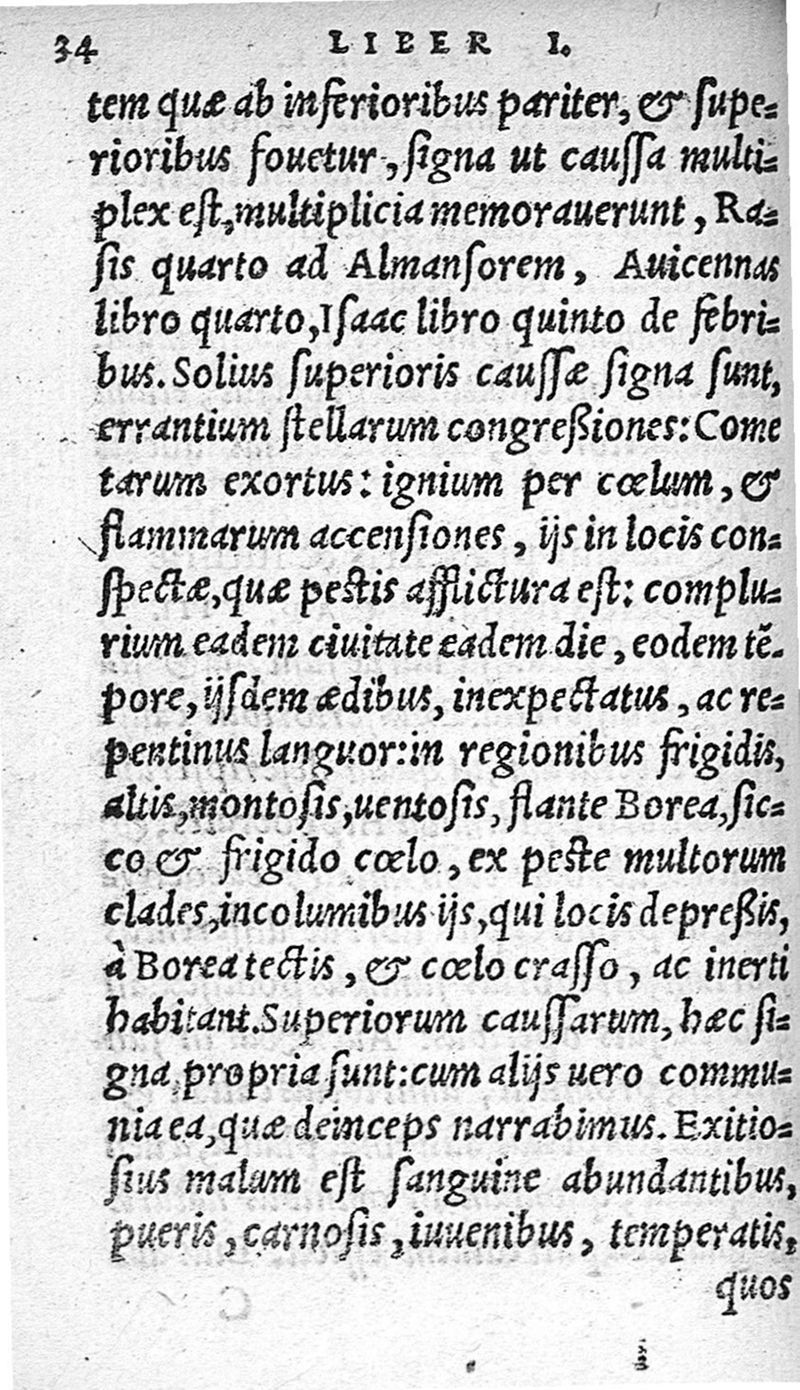 34 LIBER I.
tem quæ ab inferioribus pariter, & supe=
rioribus fouetur, signa ut caussa multi=
plex est, multiplicia memorauerunt, Ra=
sis quarto ad Almansorem, Auicennas
libro quarto, Isaac libro quinto de febri=
bus. Solius superioris caussæ signa sunt,
errantium stellarum congreßiones: Come
tarum exortus: ignium per cœlum, &
flammarum accensiones, ijs in locis con=
spectæ, quæ pestis afflictura est: complu=
rium eadem ciuitate eadem die, eodem tē=
pore, ijsdem ædibus, inexpectatus, ac re=
pentinus languor: in regionibus frigidis,
altis, montosis, uentosis, flante Borea, sic=
co & frigido cœlo, ex peste multorum
clades, incolumibus ijs, qui locis depreßis,
à Borea tectis, & cœlo crasso, ac inerti
habitant. Superiorum caussarum, hæc si=
gna propria sunt: cum alijs uero commu=
nia ea, quæ deinceps narrabimus. Exitio=
sius malum est sanguine abundantibus,
pueris, carnosis, iuuenibus, temperatis,
quos